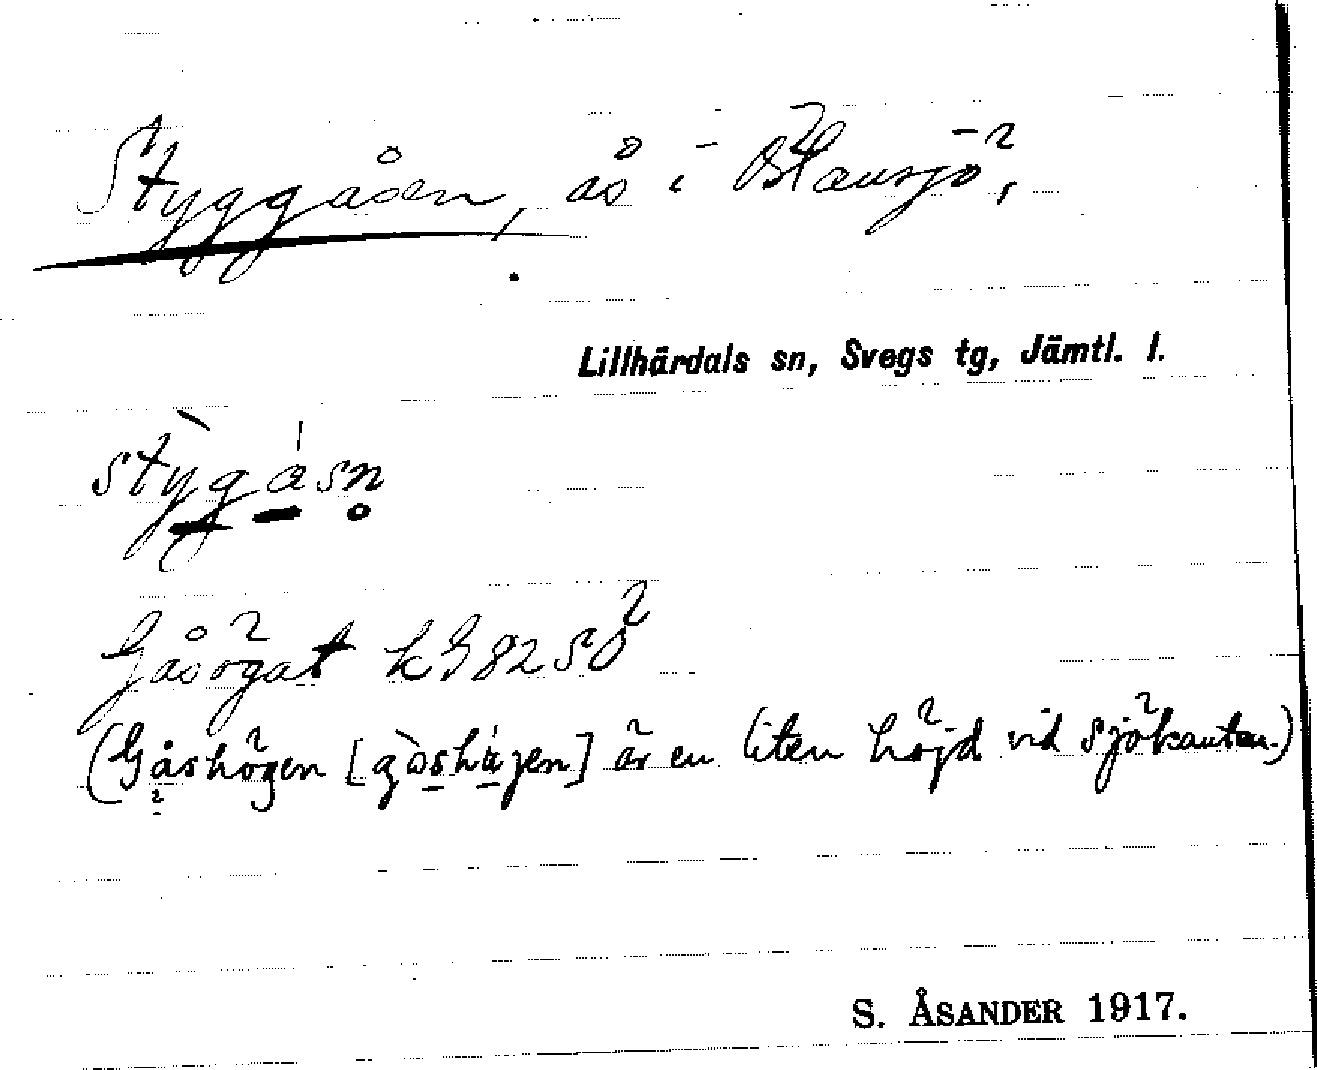 Styggåsen, ås i Öst. ansjö,
Lillhärdals sn, Svegs tg, Jämtl. l.
stỳgásn̥
Gåsögat kG82SÖ
(Gåshögen [gòshágen] är en liten höjd vid sjökanten.)
S. ÅSANDER 1917.